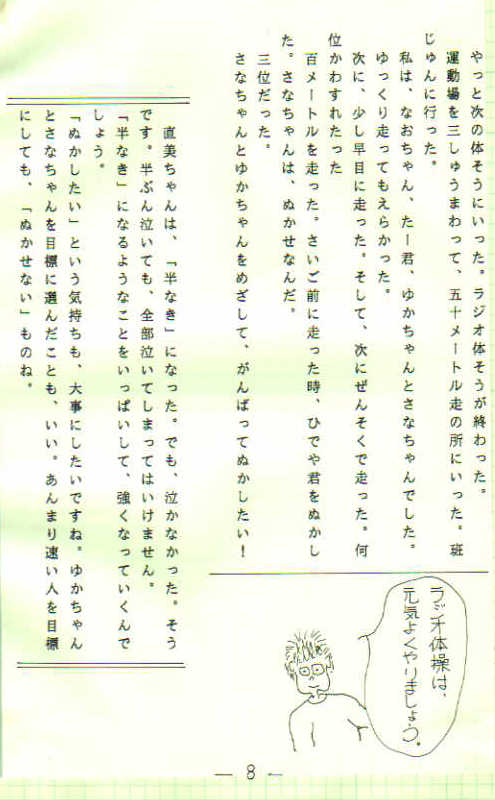 やっと次の体そうにいった。ラジオ体そうが終わった。
運動場を三しゅうまわって、五十メートル走の所にいった。班
じゅんに行った。
私は、なおちゃん、たー君、ゆかちゃんとさなちゃんでした。
ゆっくり走ってもえらかった。
次に、少し早目に走った。そして、次にぜんそくで走った。何
位かわすれたった
百メートルを走った。さいご前に走った時、ひでや君をぬかし
た。さなちゃんは、ぬかせなんだ。
三位だった。
さなちゃんとゆかちゃんをめざして、がんばってぬかしたい！
直美ちゃんは、「半なき」になった。でも、泣かなかった。そう
です。半ぶん泣いても、全部泣いてしまってはいけません。
「半なき」になるようなことをいっぱいして、強くなっていくんで
しょう。
「ぬかしたい」という気持ちも、大事にしたいですね。ゆかちゃん
とさなちゃんを目標に選んだことも、いい。あんまり速い人を目標
にしても、「ぬかせない」ものね。
ラジオ体操は、
元気よくやりましょう。
— 8 —